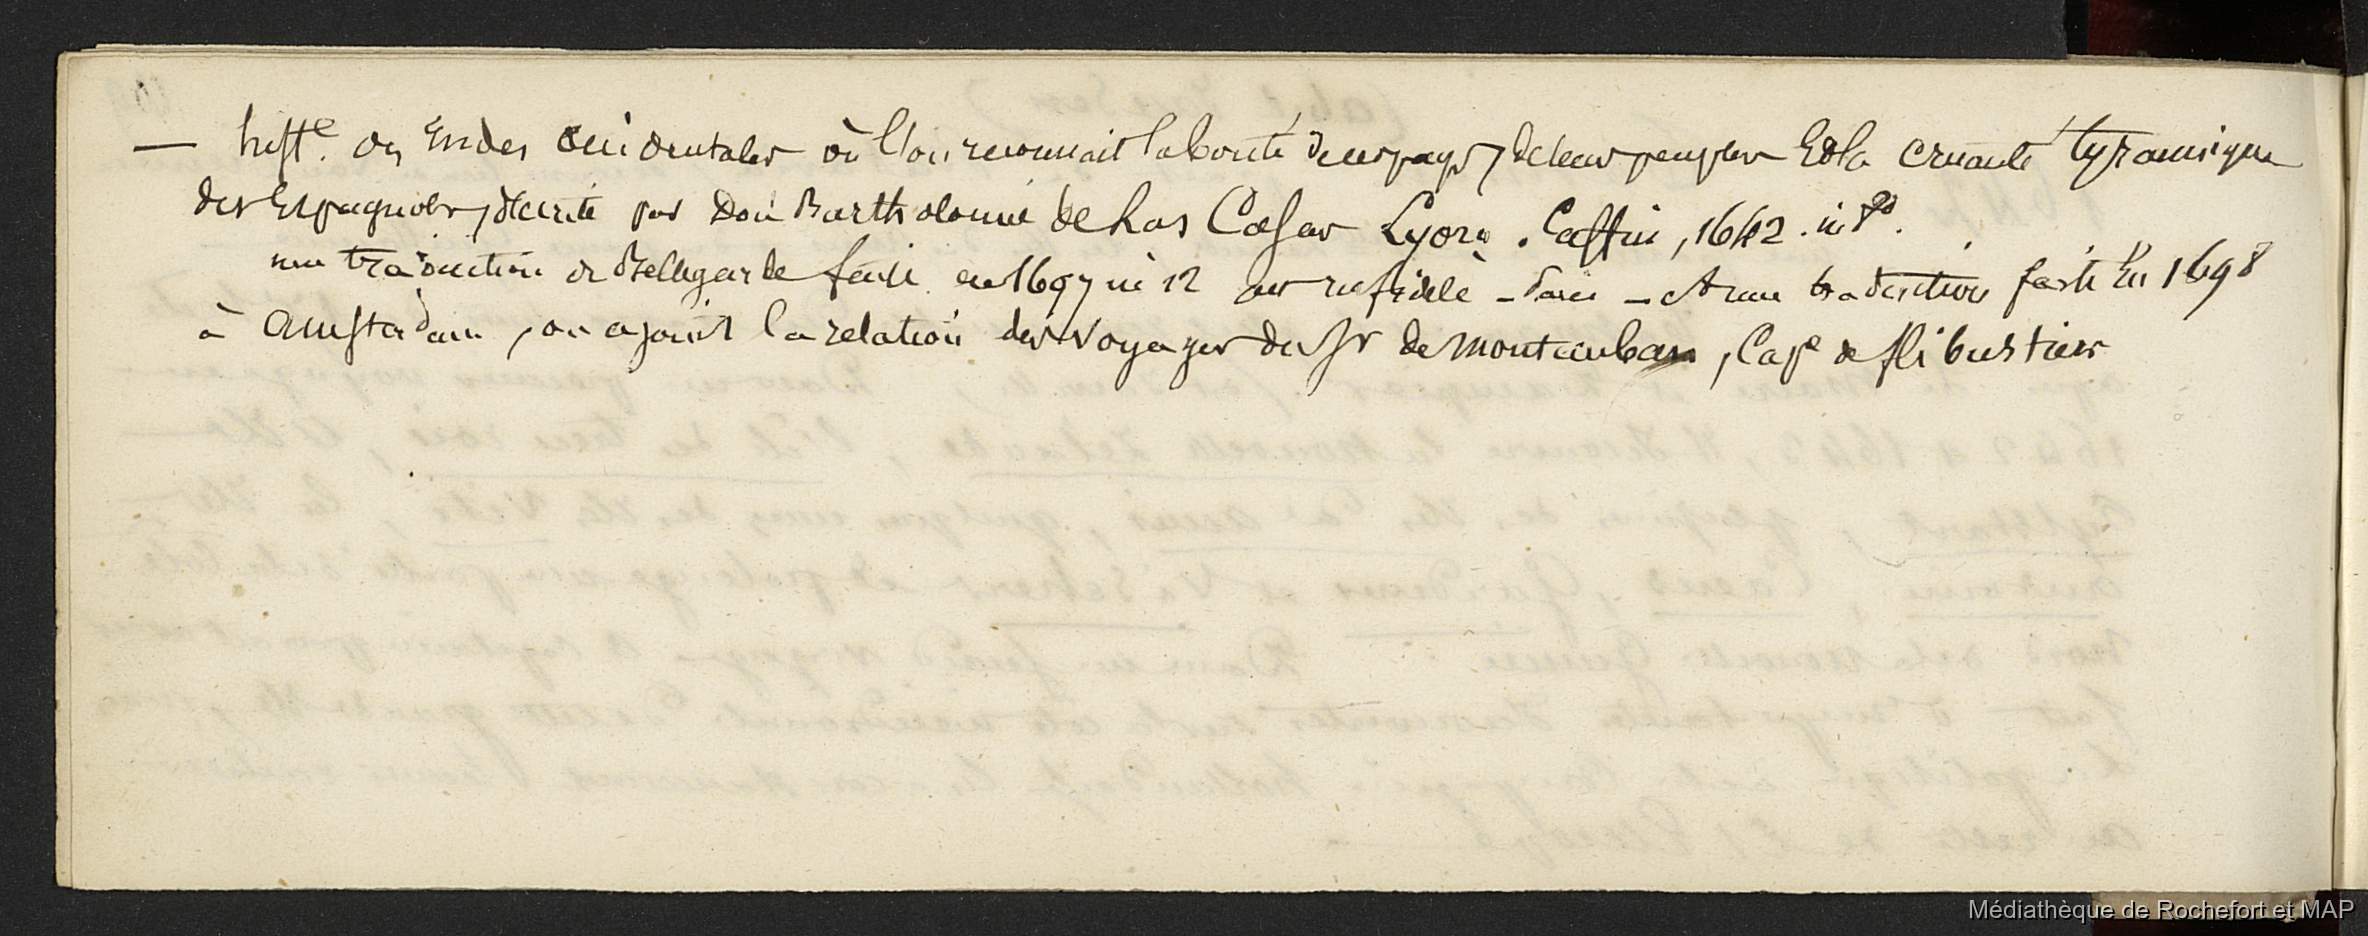 — hist.e des Indes occidentales où l'on reconnait la bonté de ces pays, de leur peuples & la cruauté tyrannique
des Espagnols, décrite par Don Bartholomé de Las Casas Lyon. Caffin, 1642. in 8°.
une traduction de Bellegarde faite en 1697 in 12 est infidèle - Paris - et une traduction faite En 1698
à Amsterdam, on a joint la relation des voyages du Sr de montauban, Cap.e de flibustiers
Médiathèque de Rochefort et MAP